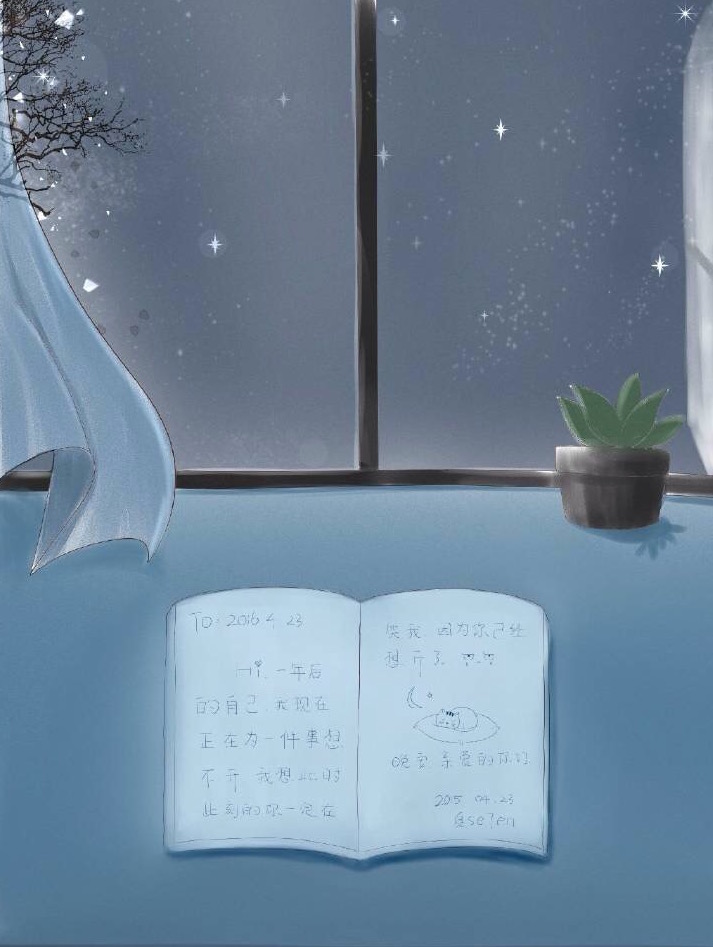 TO: 2016 4 23
Hi, 一年后
的自己,我现在
正在为一件事想
不开 我想,此时
此刻的你一定在
笑我,因为你已经
想开了
晚安,亲爱的你们
2015 04.23